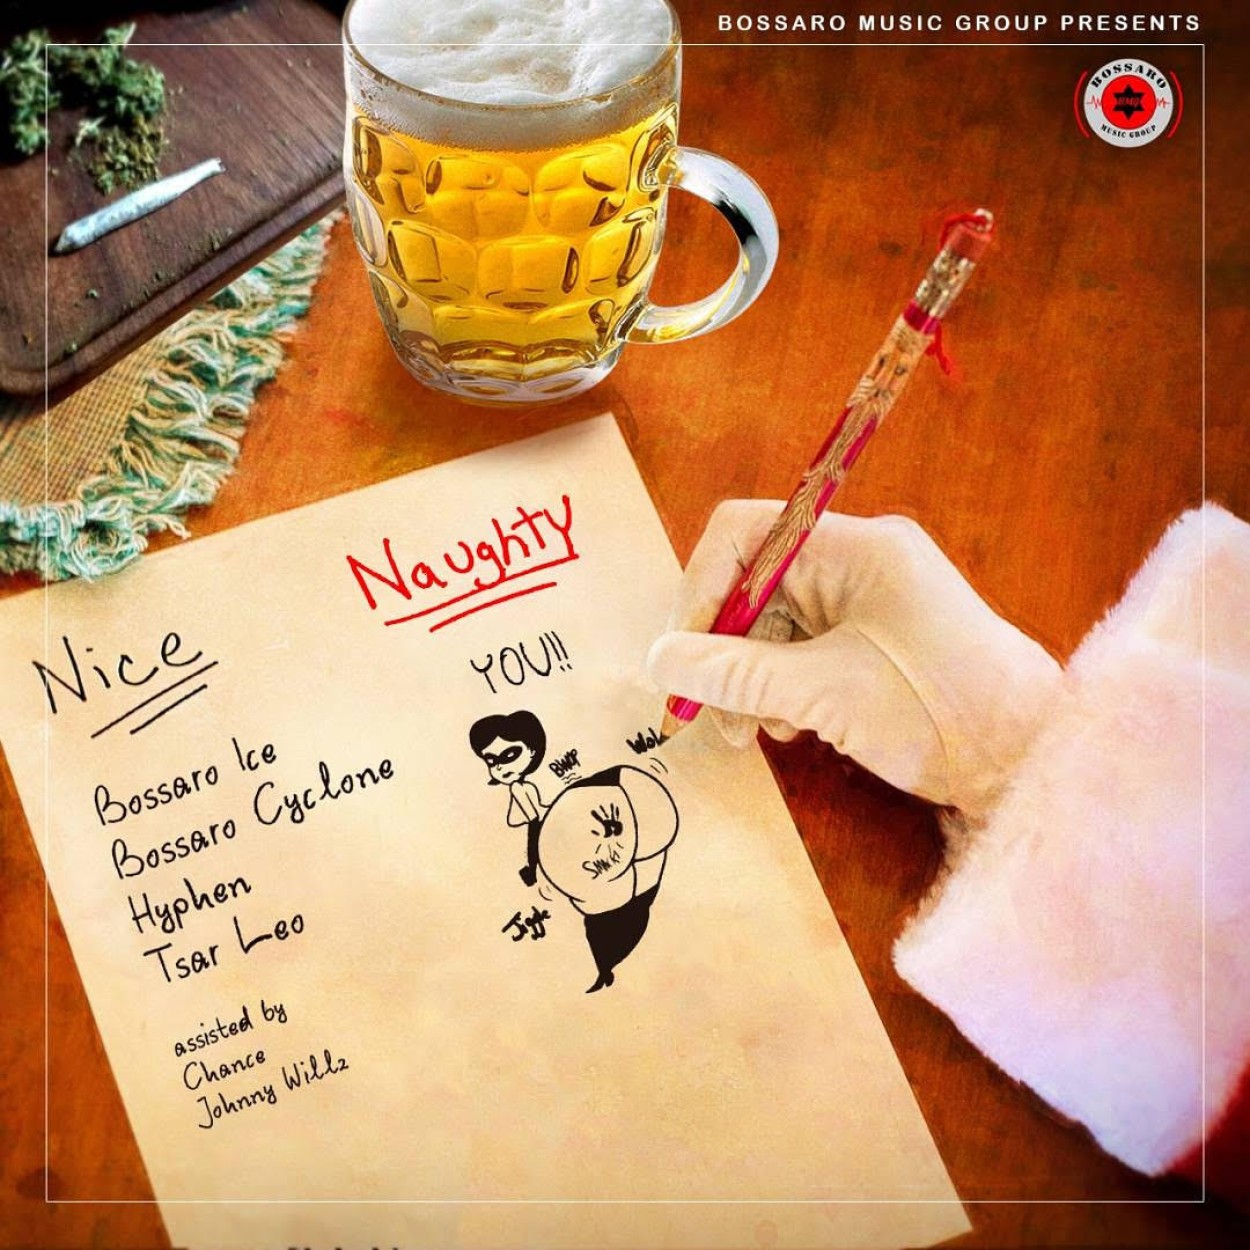 BOSSARO MUSIC GROUP PRESENTS
BOSSARO
BMG
MUSIC GROUP
Naughty
Nice
YOU!!
Bossaro Ice
Bossaro Cyclone
Hyphen
Tsar Leo
assisted by
Chance
Johnny Willz
Jiggle